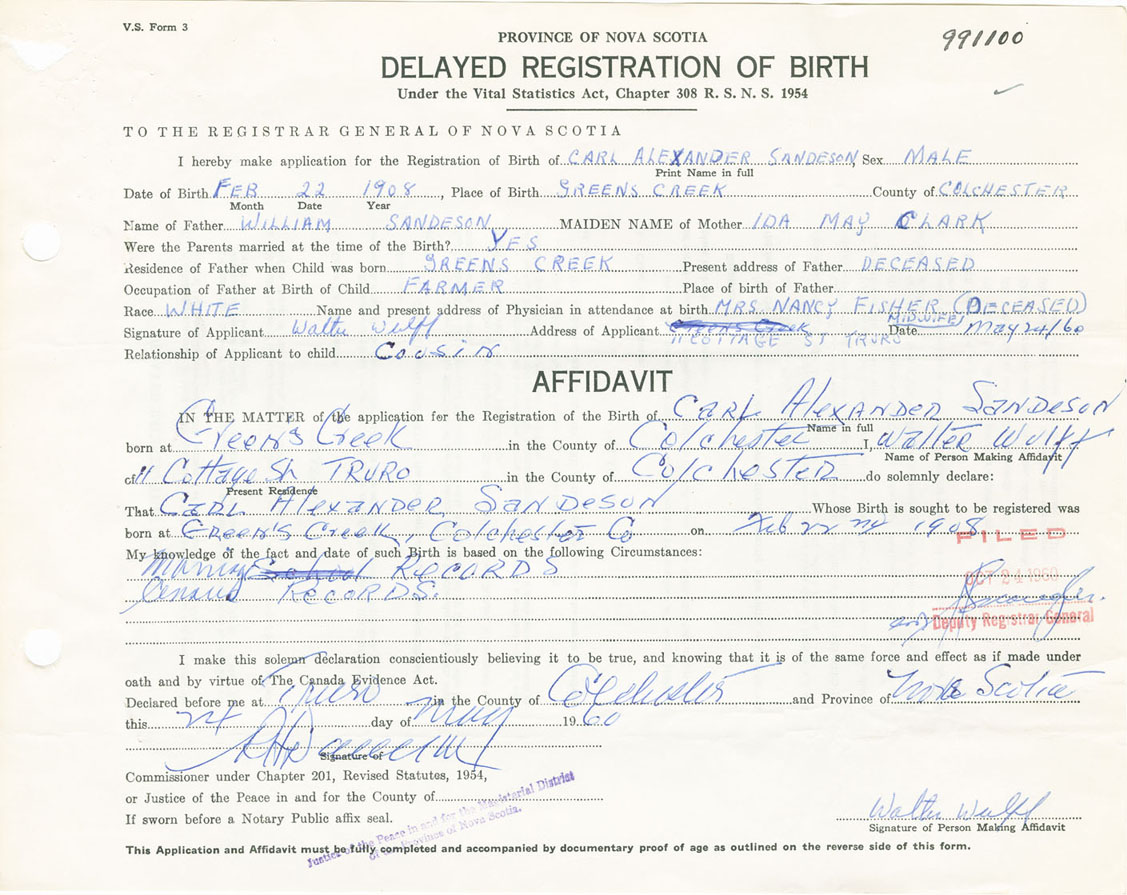 V.S. Form 3
991100
PROVINCE OF NOVA SCOTIA
DELAYED REGISTRATION OF BIRTH
Under the Vital Statistics Act, Chapter 308 R. S. N. S. 1954
TO THE REGISTRAR GENERAL OF NOVA SCOTIA
I hereby make application for the Registration of Birth of CARL ALEXANDER SANDESON, Sex MALE
Print Name in full
Date of Birth FEB 22 1908, Place of Birth GREENS CREEK County of COLCHESTER
Month Date Year
Name of Father WILLIAM SANDESON MAIDEN NAME of Mother IDA MAY CLARK
Were the Parents married at the time of the Birth? YES
Residence of Father when Child was born GREENS CREEK Present address of Father DECEASED
Occupation of Father at Birth of Child FARMER Place of birth of Father
Race WHITE Name and present address of Physician in attendance at birth MRS. NANCY FISHER (DECEASED)
MIDWIFE)
Signature of Applicant Walter Wulff Address of Applicant Greens Creek Date May 24/60
11 COTTAGE ST TRURO
Relationship of Applicant to child Cousin
AFFIDAVIT
IN THE MATTER of the application for the Registration of the Birth of Carl Alexander Sandeson
Name in full
born at Green's Creek in the County of Colchester I, Walter Wulff
Name of Person Making Affidavit
of 11 Cottage St. TRURO in the County of Colchester do solemnly declare:
Present Residence
That Carl Alexander Sandeson Whose Birth is sought to be registered was
born at Green's Creek, Colchester Co on Feb 22nd 1908
FILED
My knowledge of the fact and date of such Birth is based on the following Circumstances:
Marriage School RECORDS
OCT 24 1960
Census RECORDS.
Deputy Registrar General
I make this solemn declaration conscientiously believing it to be true, and knowing that it is of the same force and effect as if made under
oath and by virtue of The Canada Evidence Act.
Declared before me at Truro in the County of Colchester and Province of Nova Scotia
this 24 day of May 1960
Signature of
Commissioner under Chapter 201, Revised Statutes, 1954,
or Justice of the Peace in and for the County of
If sworn before a Notary Public affix seal.
Justice of the Peace in and for the Magisterial District
of Province of Nova Scotia.
Walter Wulff
Signature of Person Making Affidavit
This Application and Affidavit must be fully completed and accompanied by documentary proof of age as outlined on the reverse side of this form.